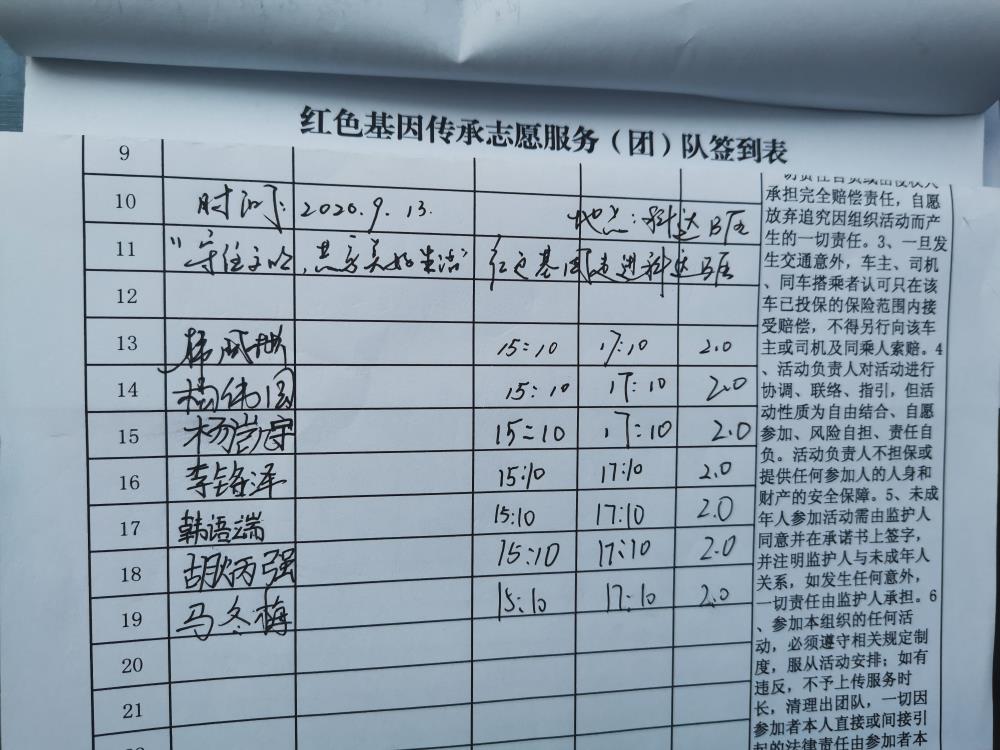 红色基因传承志愿服务（团）队签到表
9
10 时间: 2020.9.13. 地点:科达B区
11 "守住文明,共享美好生活" 红色基因走进科达B区
12
13 15:10 17:10 2.0
14 杨伟国 15:10 17:10 2.0
15 杨 守 15:10 17:10 2.0
16 李铭泽 15:10 17:10 2.0
17 韩语端 15:10 17:10 2.0
18 胡炳强 15:10 17:10 2.0
19 马冬梅 15:10 17:10 2.0
20
21
切责任自负或由侵权人
承担完全赔偿责任，自愿
放弃追究因组织活动而产
生的一切责任。3、一旦发
生交通意外，车主、司机
、同车搭乘者认可只在该
车已投保的保险范围内接
受赔偿，不得另行向该车
主或司机及同乘人索赔。4
、活动负责人对活动进行
协调、联络、指引，但活
动性质为自由结合、自愿
参加、风险自担、责任自
负。活动负责人不担保或
提供任何参加人的人身和
财产的安全保障。5、未成
年人参加活动需由监护人
同意并在承诺书上签字，
并注明监护人与未成年人
关系，如发生任何意外，
一切责任由监护人承担。6
、参加本组织的任何活
动，必须遵守相关规定制
度，服从活动安排；如有
违反，不予上传服务时
长，清理出团队，一切因
参加者本人直接或间接引
起的法律责任由参加者本